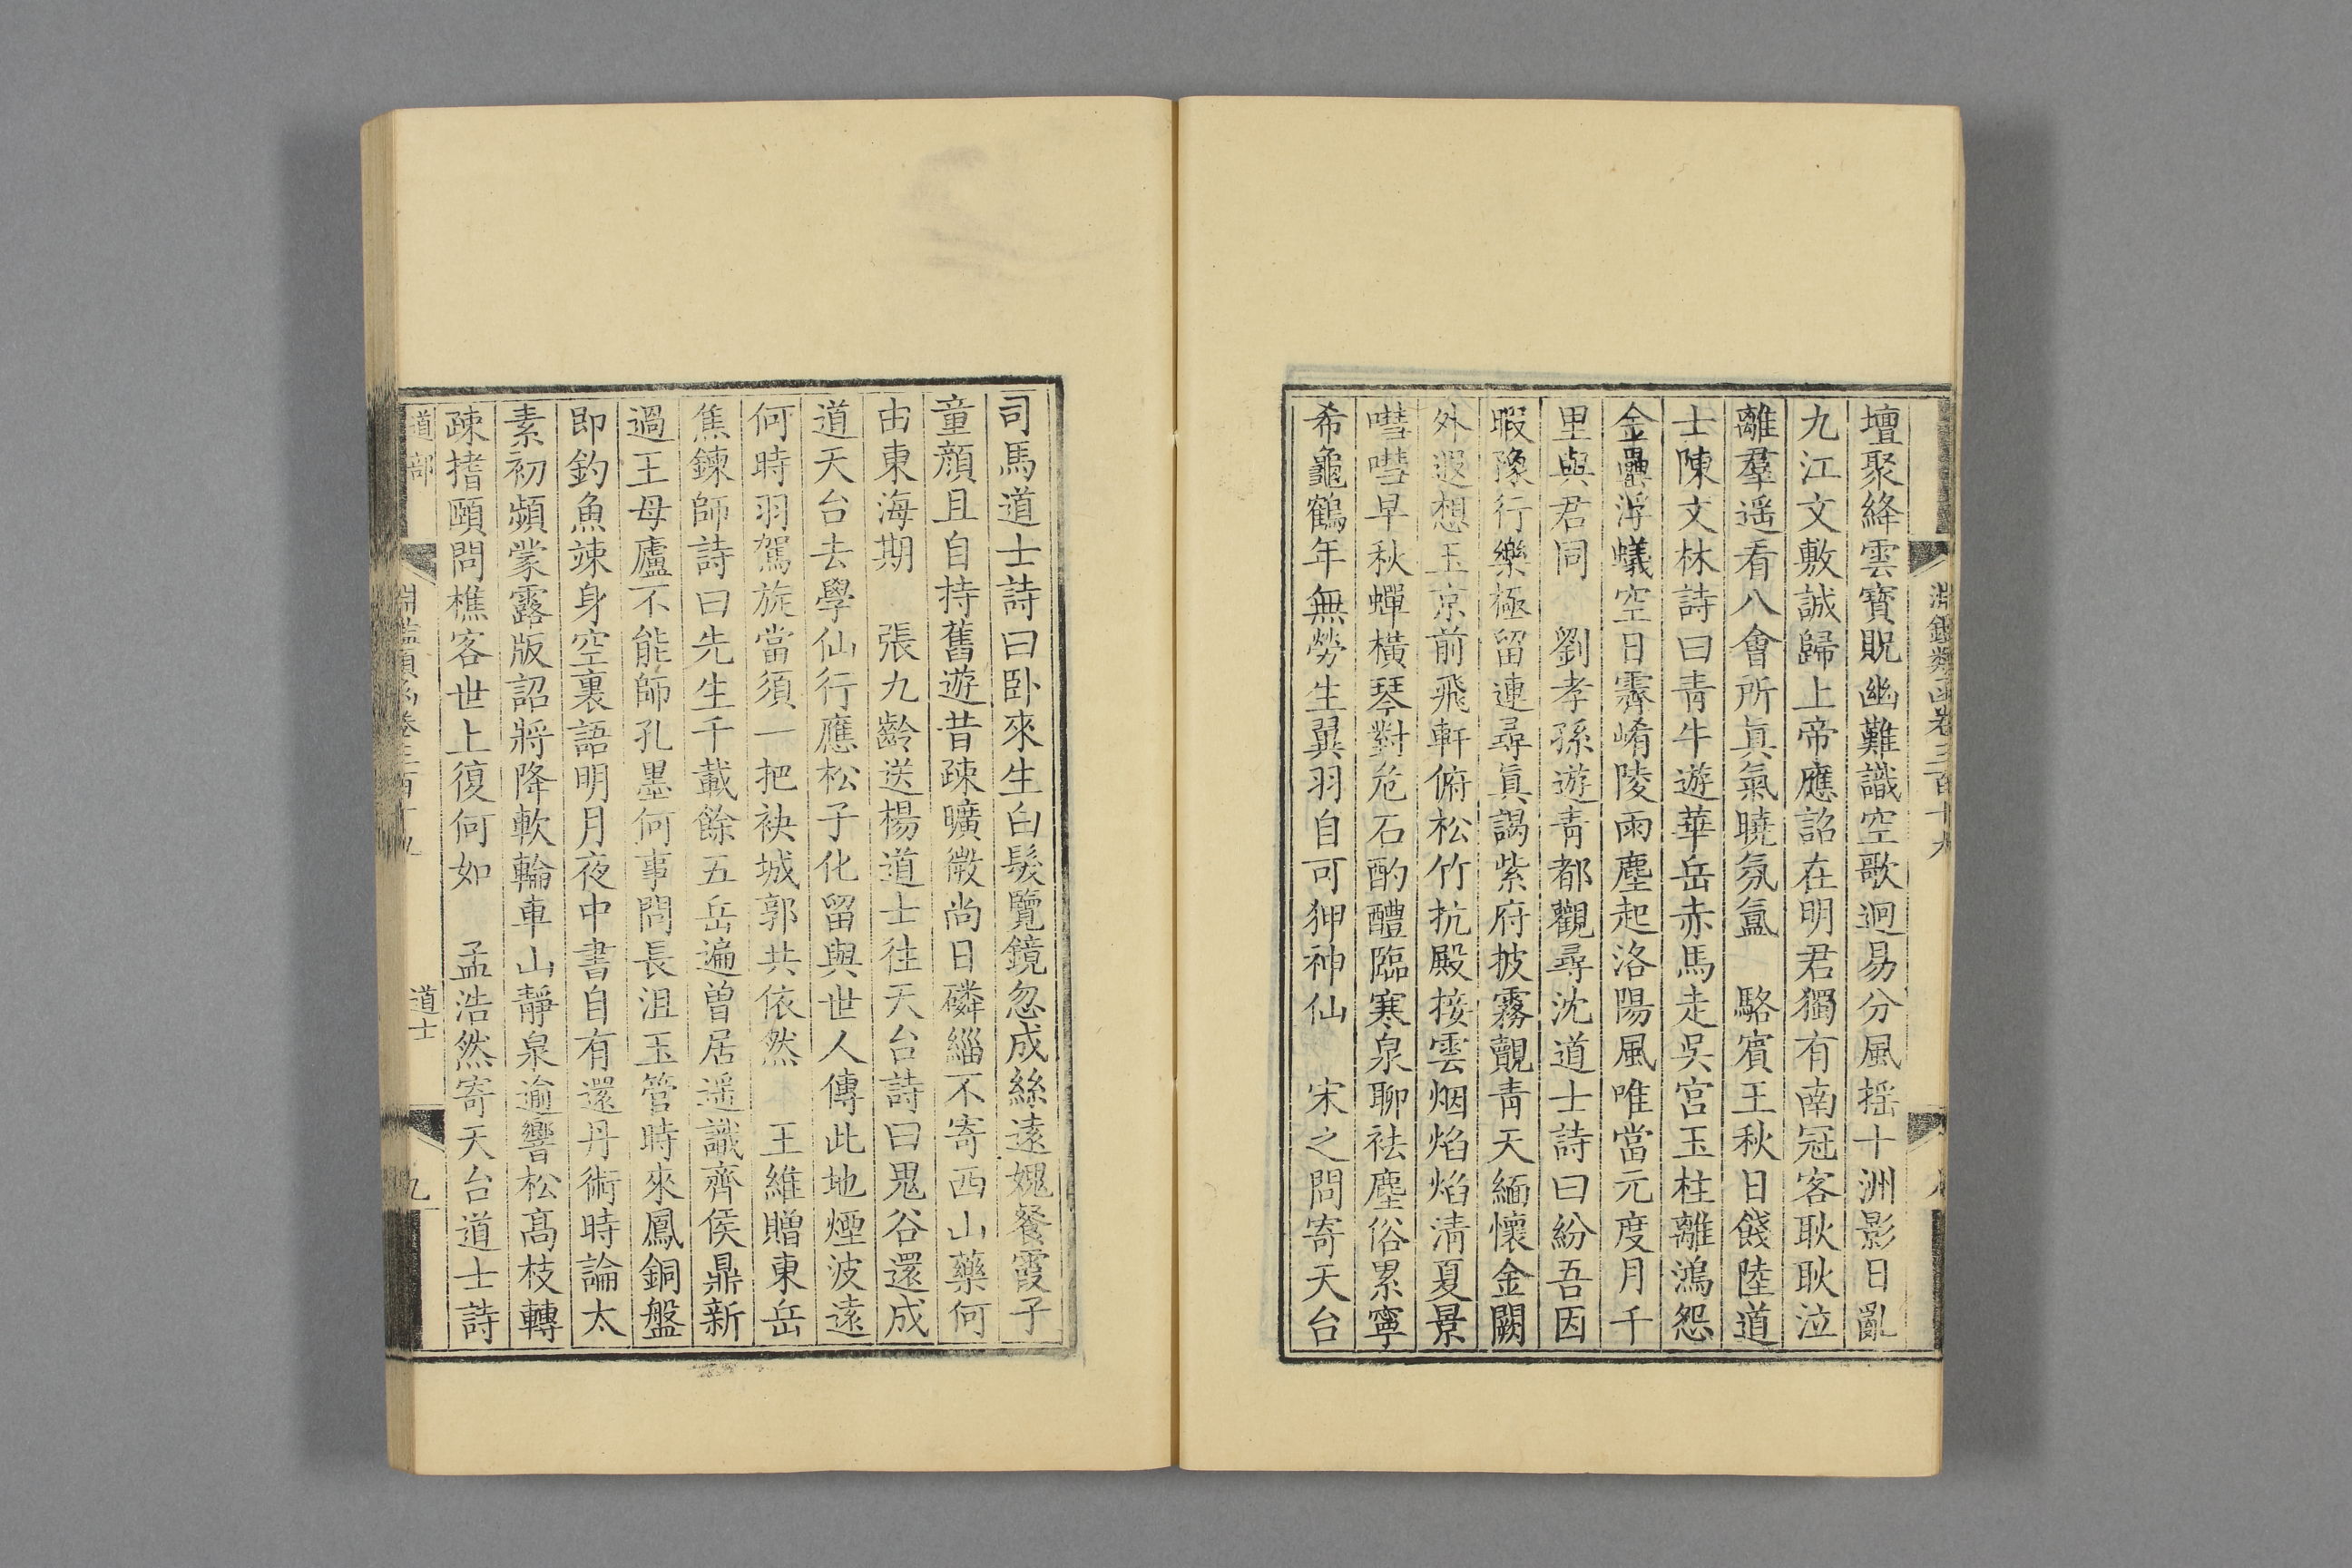 淵鑑類函卷三百十九
壇聚絳雲寶貺幽難識空歌迥易分風摇十洲影日亂
九江文敷誠歸上帝應詔在明君獨有南冠客耿耿泣
離羣遥看八會所真氣曉氛氲　駱賓王秋日餞陸道
士陳文林詩曰青牛遊華岳赤馬走吳宮玉柱離鴻怨
金罍浮蟻空日霽崤陵雨塵起洛陽風唯當元度月千
里與君同　劉孝孫遊青都觀尋沈道士詩曰紛吾因
暇豫行樂極留連尋真謁紫府披霧覿青天緬懷金闕
外遐想玉京前飛軒俯松竹抗殿接雲烟焰焰清夏景
嘒嘒早秋蟬橫琴對危石酌醴臨寒泉聊祛塵俗累寧
希龜鶴年無勞生翼羽自可狎神仙　宋之問寄天台
司馬道士詩曰卧來生白髮覽鏡忽成絲遠媿餐霞子
童顏且自持舊遊昔疎曠微尚日磷緇不寄西山藥何
由東海期　張九齡送楊道士往天台詩曰鬼谷還成
道天台去學仙行應松子化留與世人傳此地煙波遠
何時羽駕旋當須一把袂城郭共依然　王維贈東岳
焦鍊師詩曰先生千載餘五岳遍曾居遥識齊侯鼎新
過王母廬不能師孔墨何事問長沮玉管時來鳳銅盤
即釣魚竦身空裏語明月夜中書自有還丹術時論太
素初頻蒙露版詔將降軟輪車山靜泉逾響松高枝轉
疎搘頤問樵客世上復何如　孟浩然寄天台道士詩
道部　淵鑑類函卷三百十九　道士　九